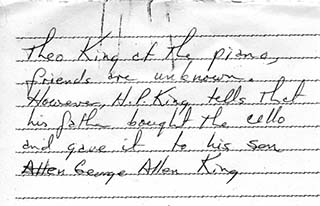 Theo King at the piano,
friends are unknown.
However, H.P. King tells that
his father bought the cello
and gave it to his son
Allen George Allen King